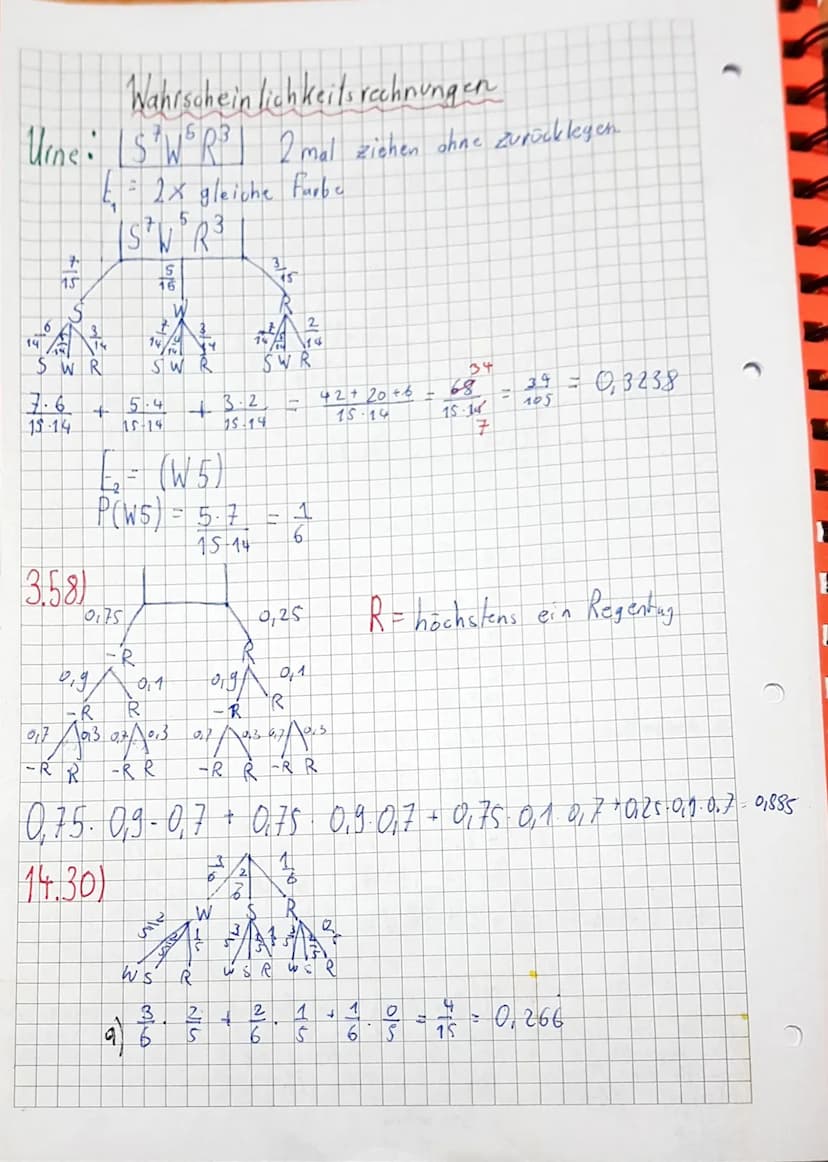 Wahrscheinlichkeitsrechnungen
Urne: |S⁷W⁵R³| 2 mal ziehen ohne zurücklegen
E₁ = 2x gleiche Farbe
|S⁷W⁵R³|
7/15 5/15 3/15
S W R
6/14 5/14 3/14 7/14 4/14 3/14 7/14 5/14 2/14
S W R S W R S W R
7·6/15·14 + 5·4/15·14 + 3·2/15·14 = 42+20+6/15·14 = 68/15·14 = 34/105 = 0,3238
34
7
E₂ = (WS)
P(WS) = 5·7/15·14 = 1/6
3.58)
0,75 0,25 R = höchstens ein Regentag
-R R
0,9 0,1 0,9 0,1
-R R -R R
0,7 0,3 0,7 0,3 0,7 0,3 0,7 0,3
-R R -R R -R R -R R
0,75·0,9·0,7 + 0,75·0,9·0,7 + 0,75·0,1·0,7 + 0,25·0,9·0,7 = 0,885
14.30)
3/6 2/6 1/6
W S R
2/5 2/5 1/5 3/5 1/5 1/5 3/5 2/5 0/5
W S R W S R W S R
a) 3/6 · 2/5 + 2/6 · 1/5 + 1/6 · 0/5 = 4/15 = 0,266